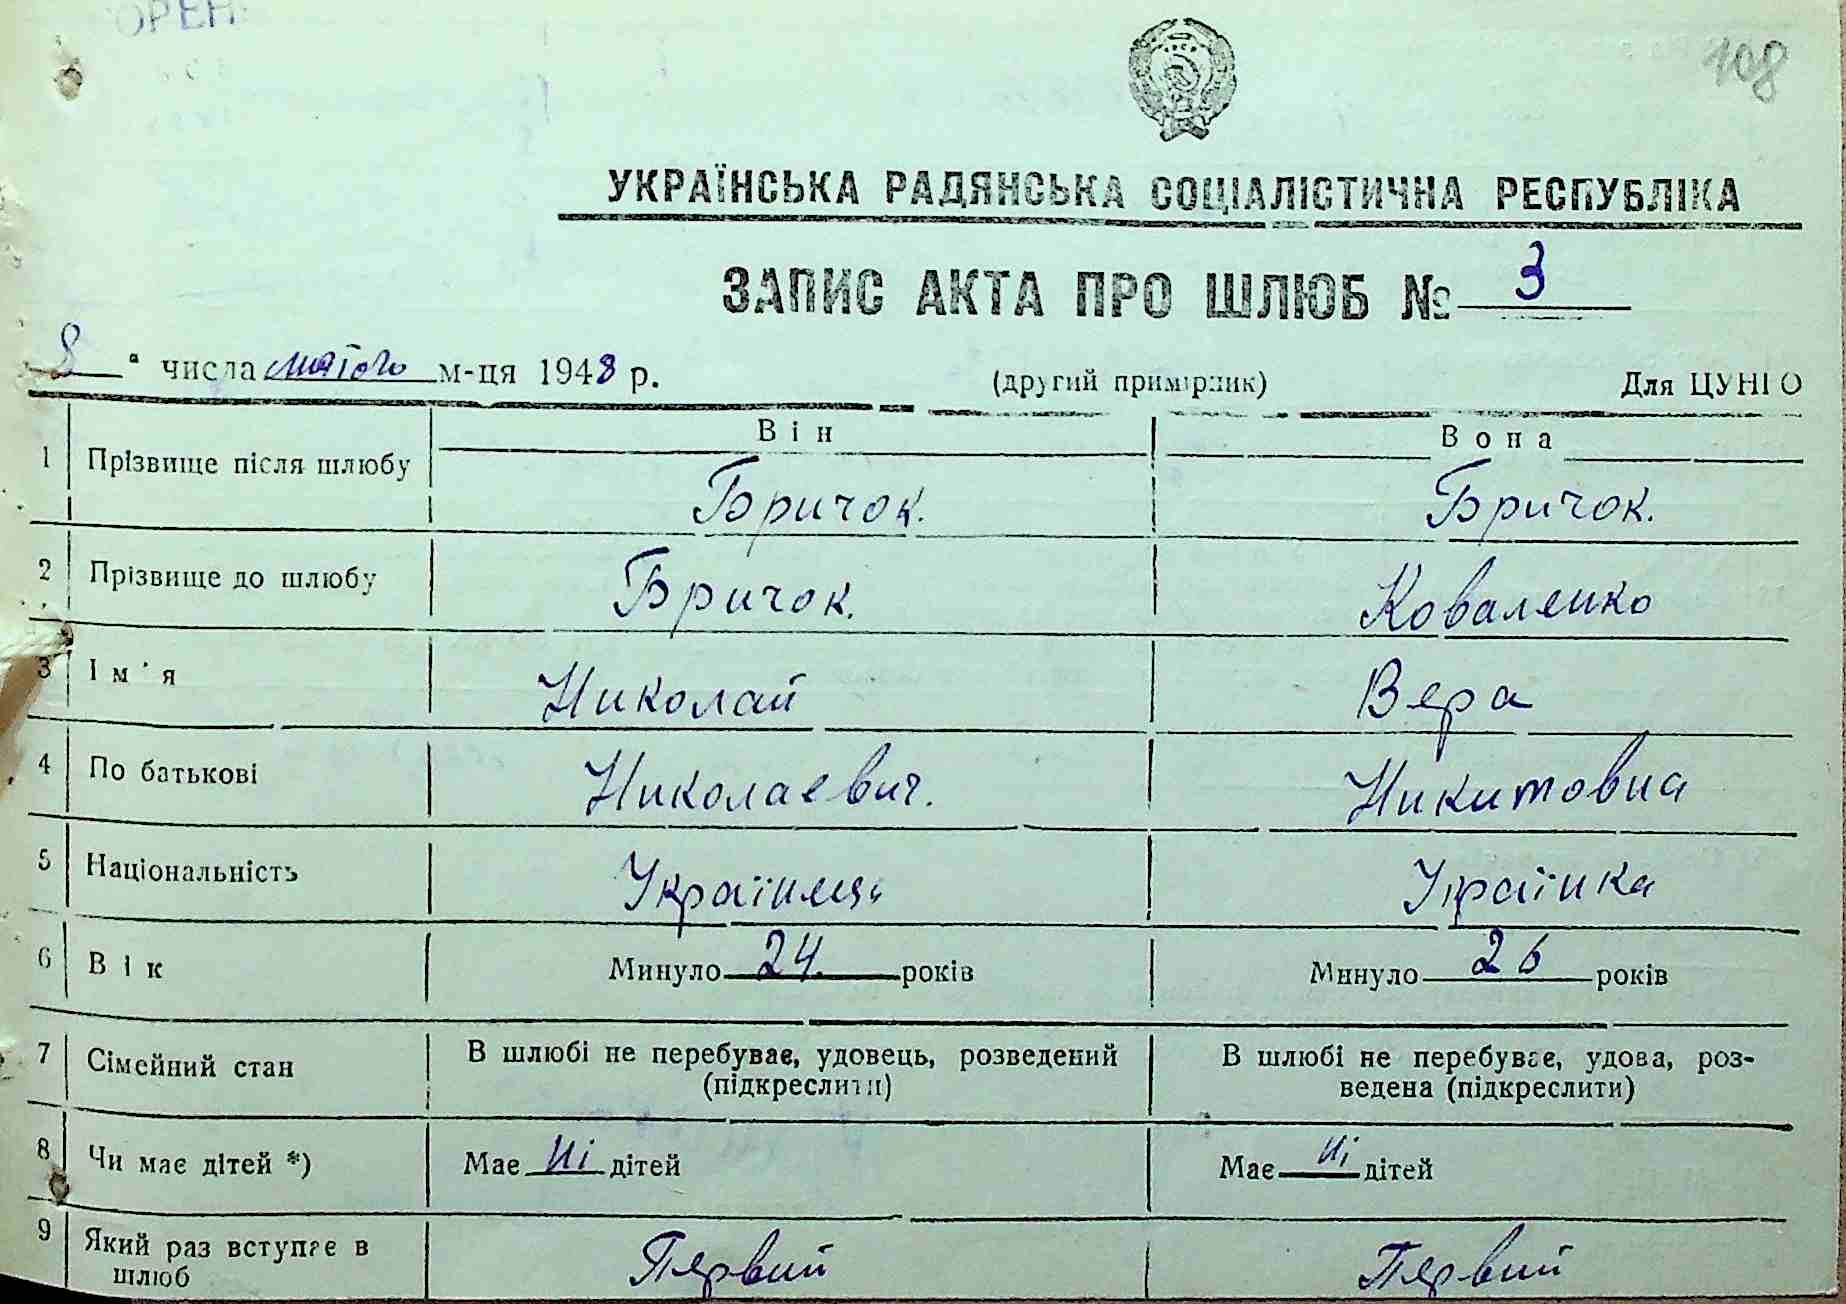 ОРЕН
108
УКРАЇНСЬКА РАДЯНСЬКА СОЦІАЛІСТИЧНА РЕСПУБЛІКА
ЗАПИС АКТА ПРО ШЛЮБ № 3
8 " числа лютого м-ця 1948 р. (другий примірник) Для ЦУНГО
Він Вона
1 Прізвище після шлюбу Бричок. Бричок.
2 Прізвище до шлюбу Бричок. Коваленко
3 Ім'я Николай Вера
4 По батькові Николаевич. Никитовна
5 Національність Українець Українка
6 Вік Минуло 24 років Минуло 26 років
7 Сімейний стан В шлюбі не перебуває, удовець, розведений В шлюбі не перебуває, удова, роз-
(підкреслити) ведена (підкреслити)
8 Чи має дітей *) Має ні дітей Має ні дітей
9 Який раз вступає в Первий Первий
шлюб